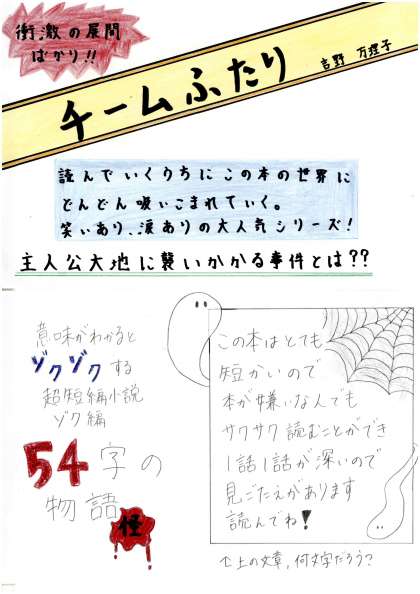 衝激の展開
ばかり!!
チームふたり
吉野 万理子
読んでいくうちにこの本の世界に
どんどん吸いこまれていく。
笑いあり、涙ありの大人気シリーズ!
主人公大地に襲いかかる事件とは??
意味がわかると
ゾクゾクする
超短編小説
ゾク編
54字の
物語
怪
この本はとても
短かいので
本が嫌いな人でも
サクサク読むことができ
1話1話が深いので
見ごたえがあります
読んでね!
↑上の文章,何文字だろう?